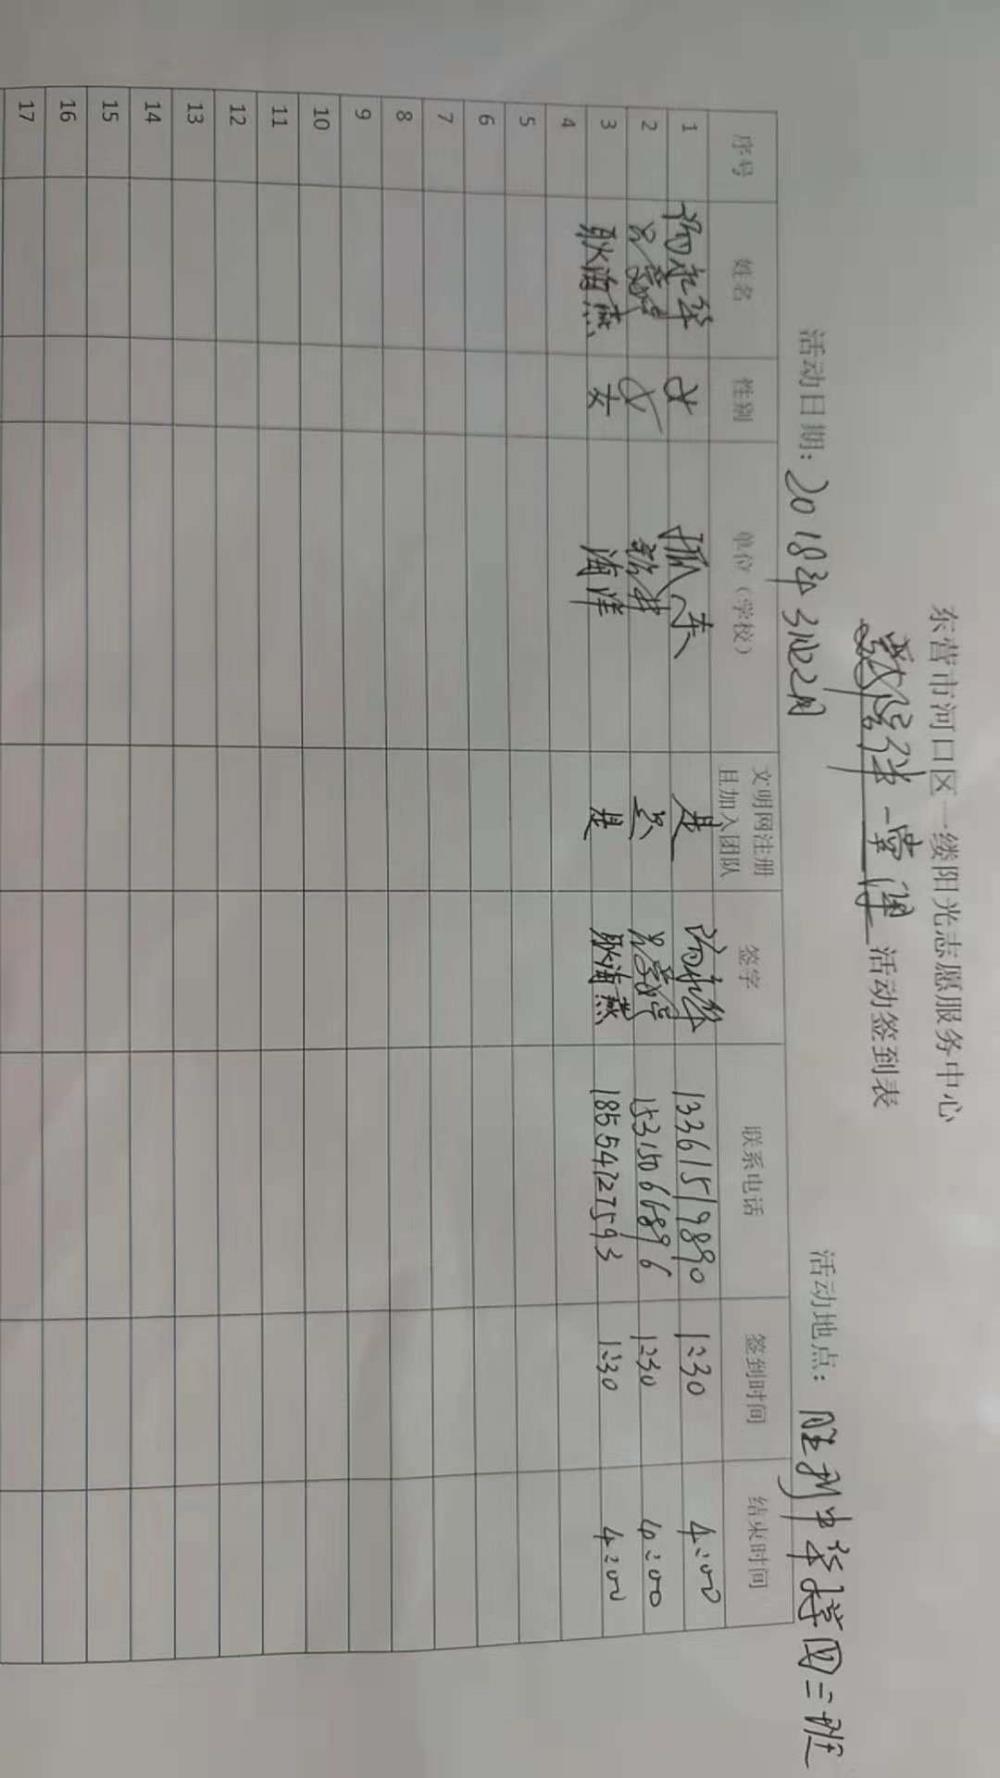 东营市河口区一缕阳光志愿服务中心
活动签到表
活动日期：2018年3月22日 活动地点：胜利中学 二班
序号 姓名 性别 单位（学校） 文明网注册且加入团队 签字 联系电话 签到时间 结束时间
1 永华 女 孤东 是 永华 13361519890 1:30 4:00
2 女 是 15315066896 1:30 4:00
3 耿海燕 女 海洋 是 耿海燕 18554727593 1:30 4:00
4
5
6
7
8
9
10
11
12
13
14
15
16
17